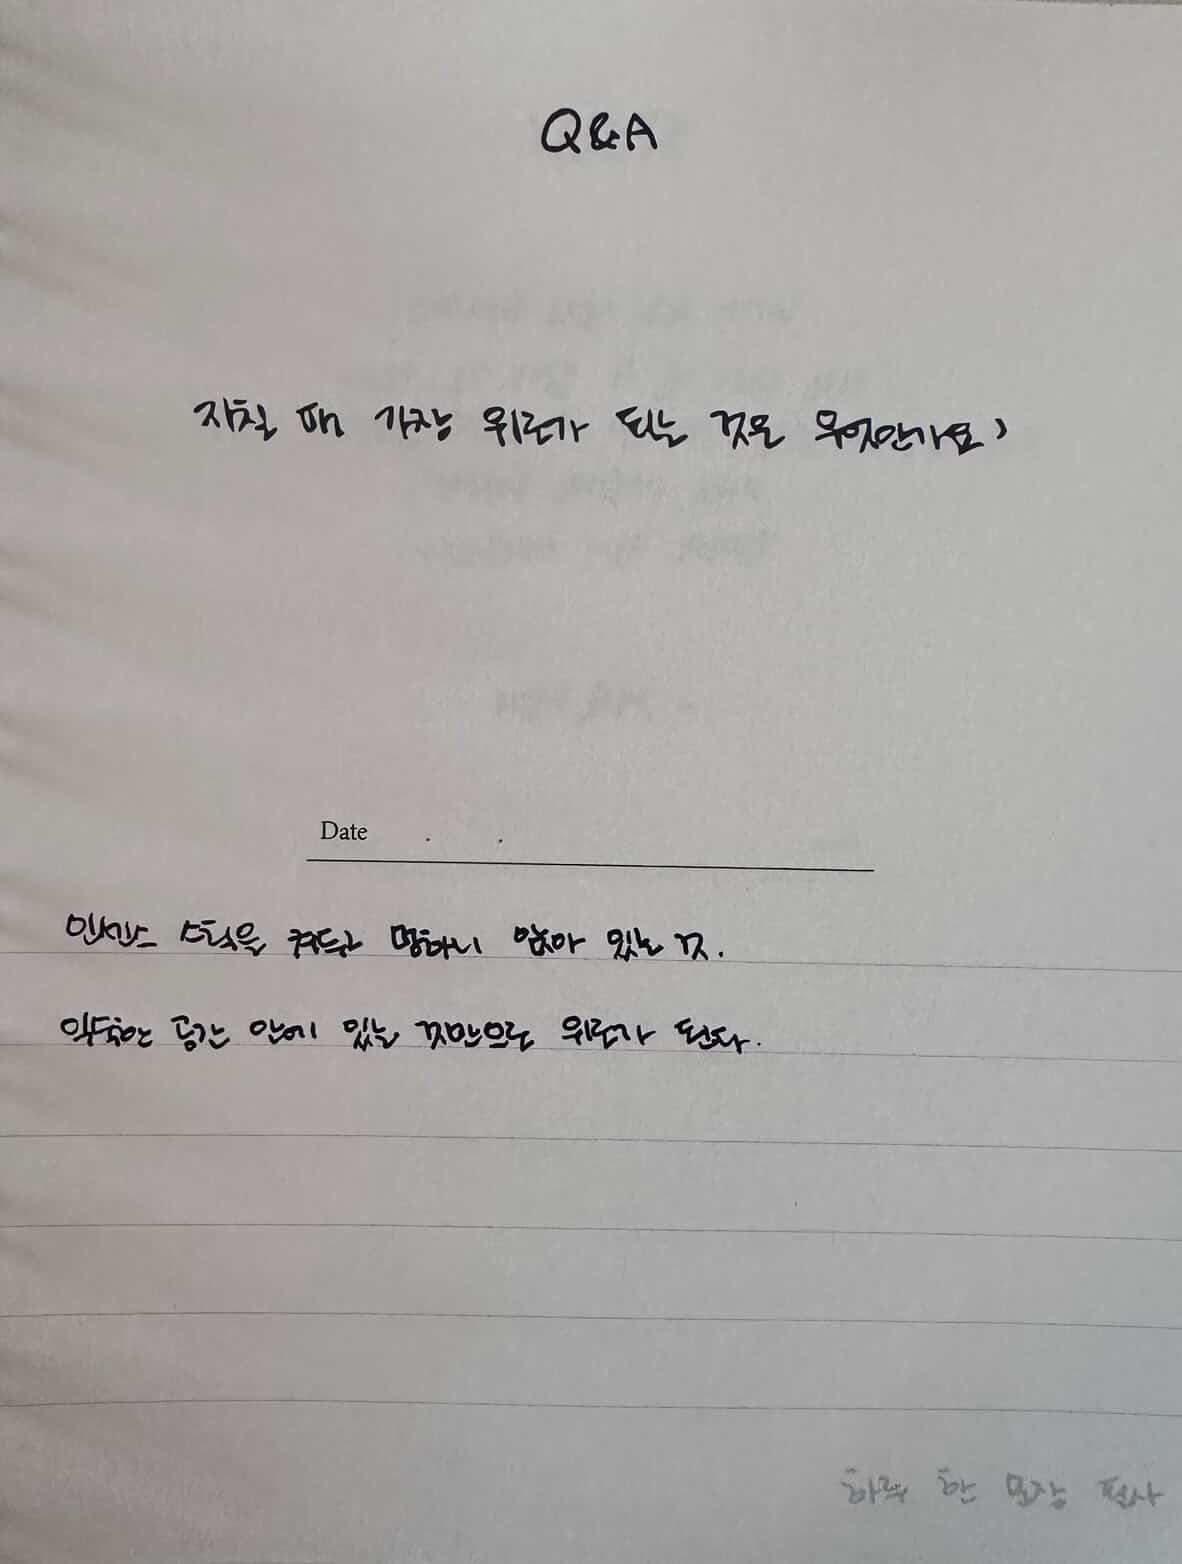 Q&A
지칠 때 가장 위로가 되는 것은 무엇인가요?
Date . .
인센스 스틱을 켜두고 멍하니 앉아 있는 것.
익숙한 공간 안에 있는 것만으로 위로가 된다.
하루 한 문장 필사